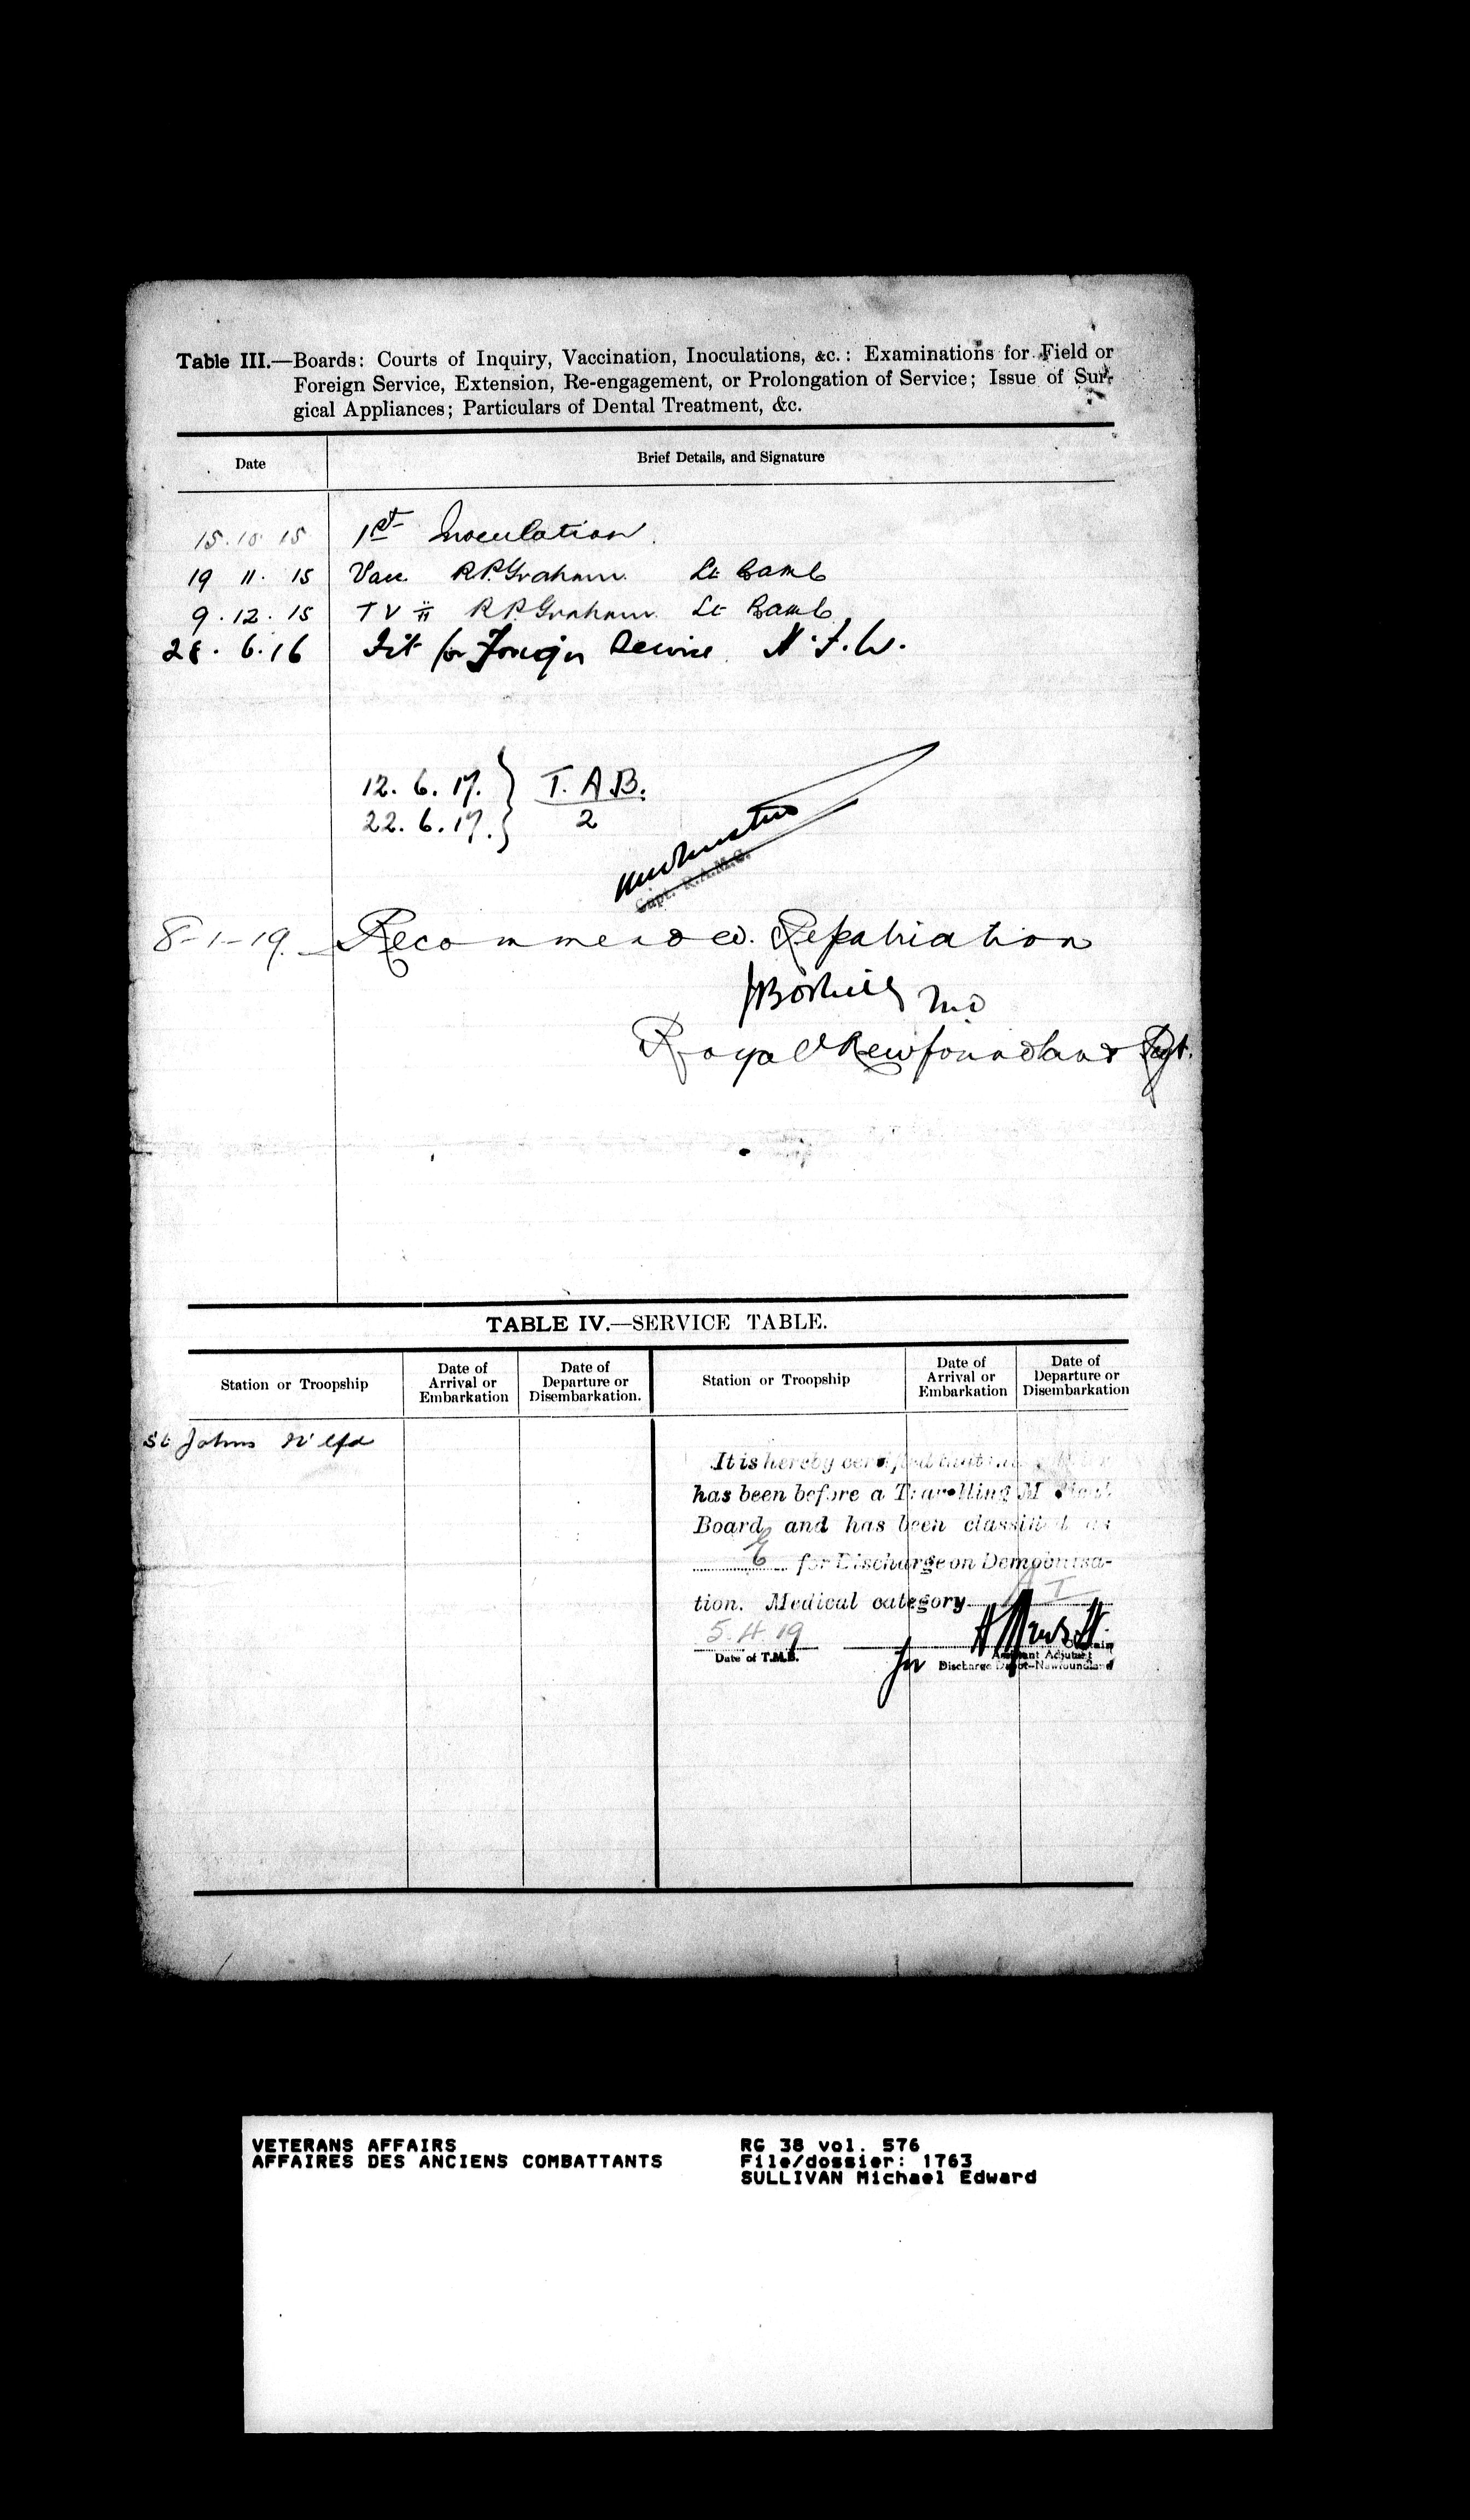 Table III.—Boards: Courts of Inquiry, Vaccination, Inoculations, &c.: Examinations for Field or
Foreign Service, Extension, Re-engagement, or Prolongation of Service; Issue of Sur-
gical Appliances; Particulars of Dental Treatment, &c.
Date Brief Details, and Signature
15.10.15 1st Inoculation.
19 11. 15 Vacc. R P. Graham. Lt Ramc
9.12.15 TV II R P. Graham. Lt Ramc
28.6.16 Fit for Foreign Service.
12.6.17. } T.A.B.
22.6.17. } 2
Capt. R.A.M.C.
8-1-19. Recommended. Repatriation
Royal Newfoundland Regt.
TABLE IV.—SERVICE TABLE.
Station or Troopship Date of Arrival or Embarkation Date of Departure or Disembarkation. Station or Troopship Date of Arrival or Embarkation Date of Departure or Disembarkation
St Johns N'lfd
It is hereby certified that
has been before a Travelling Medical
Board, and has been classified as
E for Discharge on Demobilisa-
tion. Medical category
5.4.19
Date of T.M.B. for Captain
Assistant Adjutant
Discharge Depot—Newfoundland
VETERANS AFFAIRS
AFFAIRES DES ANCIENS COMBATTANTS
RG 38 vol. 576
File/dossier: 1763
SULLIVAN Michael Edward